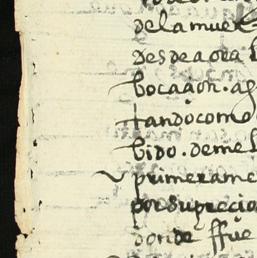 dela muer
desde aora
boca aon. ag
tandocomo
bido. deme
primerame
por su precio
donde ffue